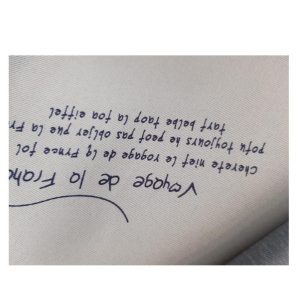 Voyage de la Franc
Cherete nief le vogage de lq Frnce fol
potu toujours he peof pas oblier que la Fr
tarf belbe taop la toa eiffel